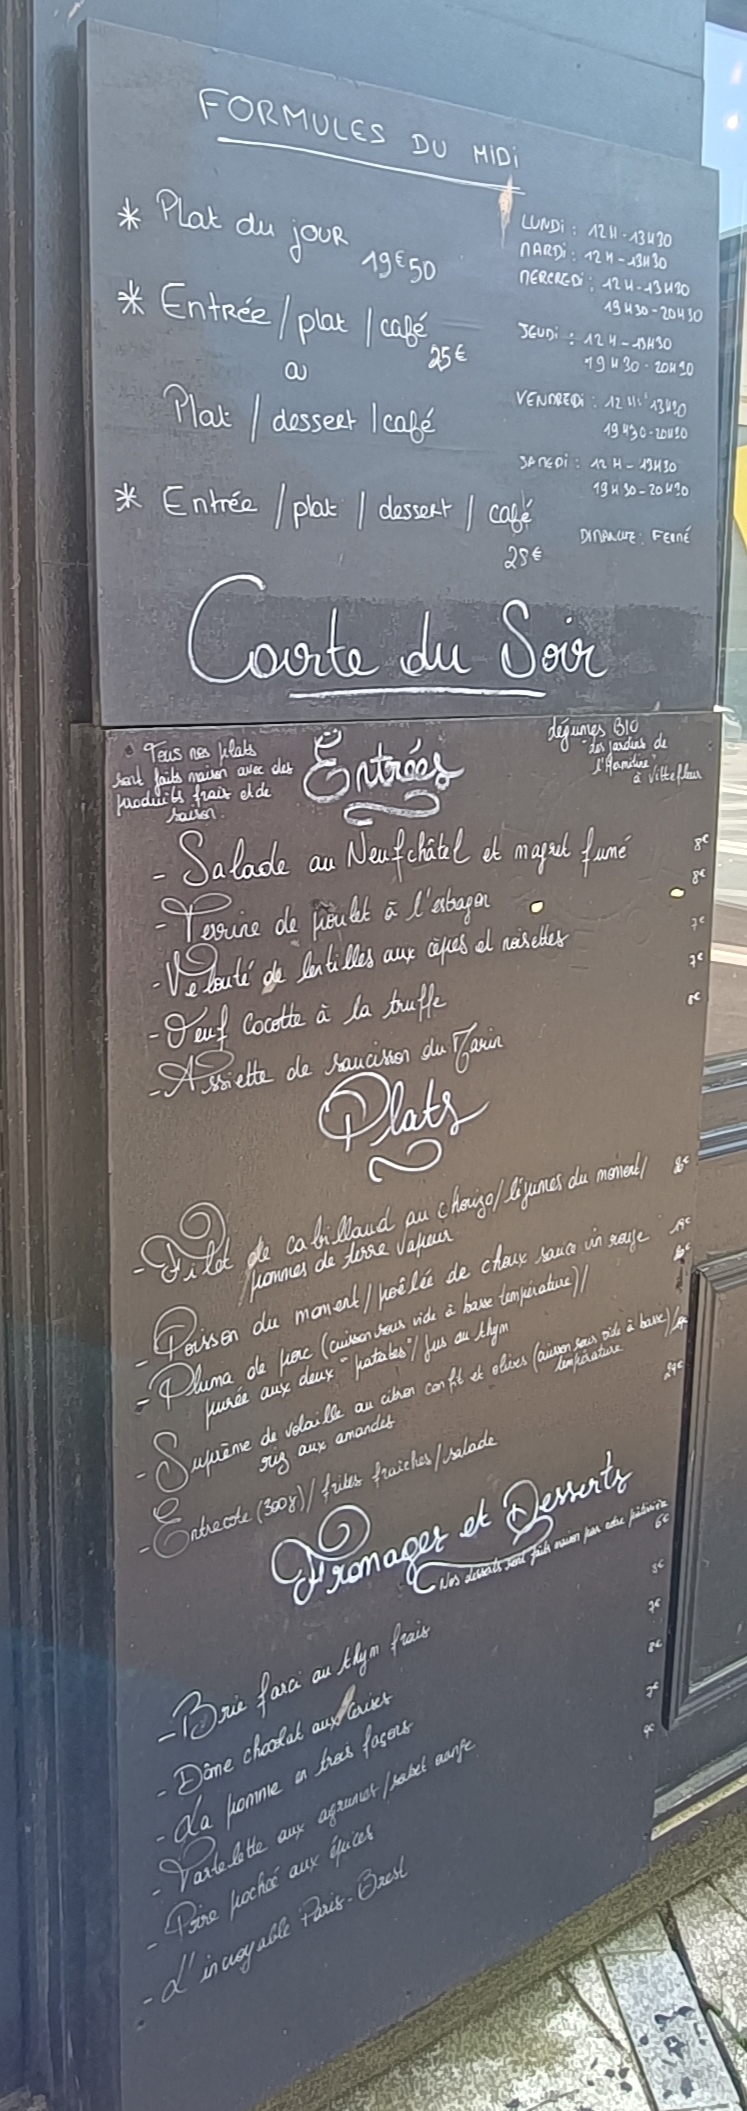 FORMULES DU MIDi
* Plat du jour
19€50
* Entrée / plat / café
25€
ou
Plat / dessert / café
* Entrée / plat / dessert / café
LUNDi : 12H-13H30
MARDi : 12H-13H30
MERCREDi : 12H-13H30
19H30-20H30
JEUDi : 12H-13H30
19H30-20H30
VENDREDi : 12H-13H30
19H30-20H30
SAMEDi : 12H-13H30
19H30-20H30
DIMANCHE : FERMÉ
Carte du Soir
Tous nos plats
sont faits maison avec des
produits frais et de
saison.
Entrées
légumes BIO
des jardins de
à Vittefleur
- Salade au Neufchâtel et magret fumé 8€
- Terrine de poulet à l'estragon 8€
- Velouté de lentilles aux cèpes et noisettes 7€
- Oeuf Cocotte à la truffe 7€
- Assiette de saucisson du 8€
Plats
- Filet de cabillaud au chorizo/légumes du moment/
pommes de terre vapeur
- Poisson du moment/poêlée de choux sauce vin rouge
- Pluma de porc (cuisson sous vide à basse température)/
purée aux deux "patates"/ jus au thym
- Suprême de volaille au citron confit et olives (cuisson sous vide à basse)/
température
riz aux amandes
- Entrecote (300g)/ frites fraiches/salade
Fromages et Desserts
Nos desserts sont faits maison par notre pâtissière
- Brie farci au thym frais 6€
- Dôme chocolat aux cerises
- La pomme en trois façons 7€
- Tartelette aux agrumes/sorbet orange 8€
- Poire pochée aux épices 7€
- L'incroyable Paris-Brest 9€